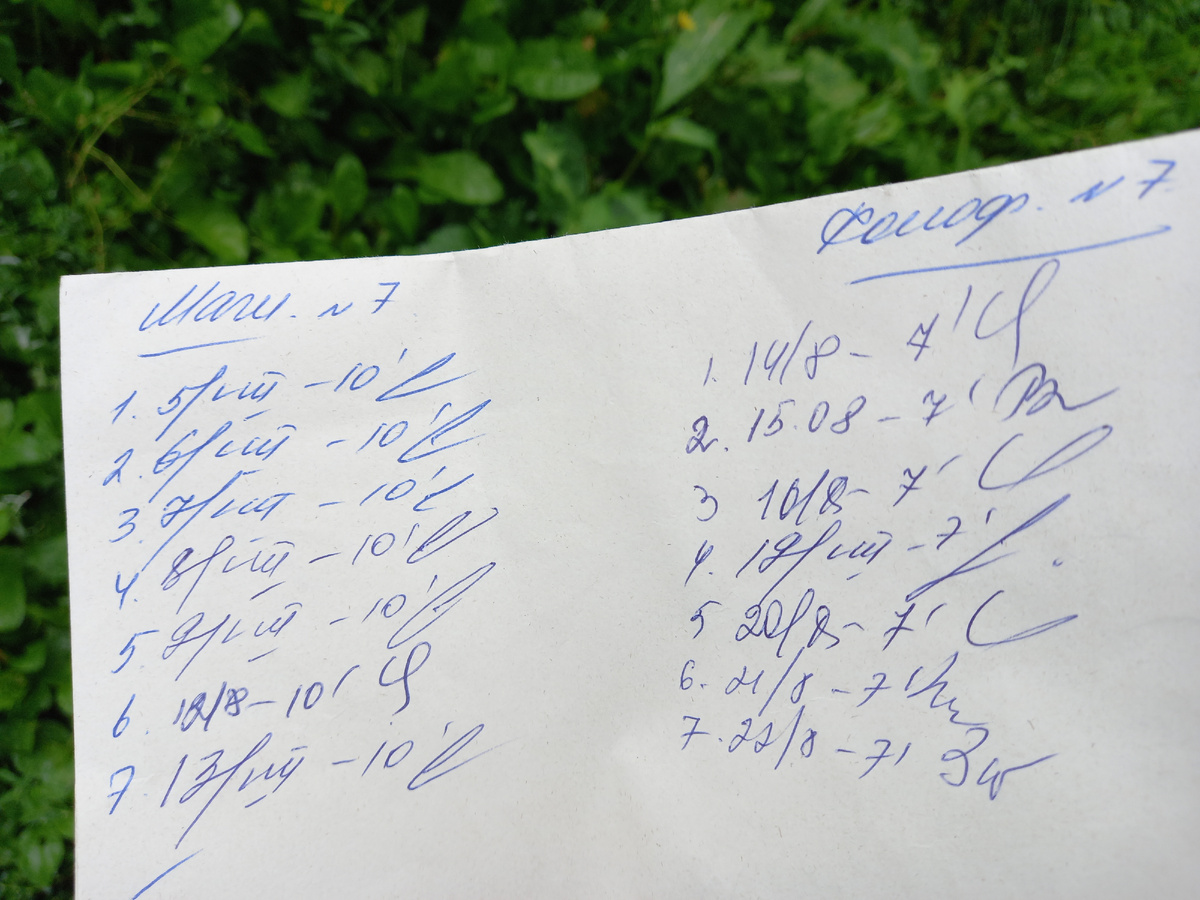 Магн. N 7
1. 5/VIII - 10'
2. 6/VIII - 10'
3. 7/VIII - 10'
4. 8/VIII - 10'
5. 9/VIII - 10'
6. 12/8 - 10'
7. 13/VIII - 10'
Фоноф. N 7
1. 14/8 - 7'
2. 15.08 - 7'
3 16/8 - 7'
4. 19/VIII - 7'
5 20/8 - 7'
6. 21/8 - 7'
7. 22/8 - 7'